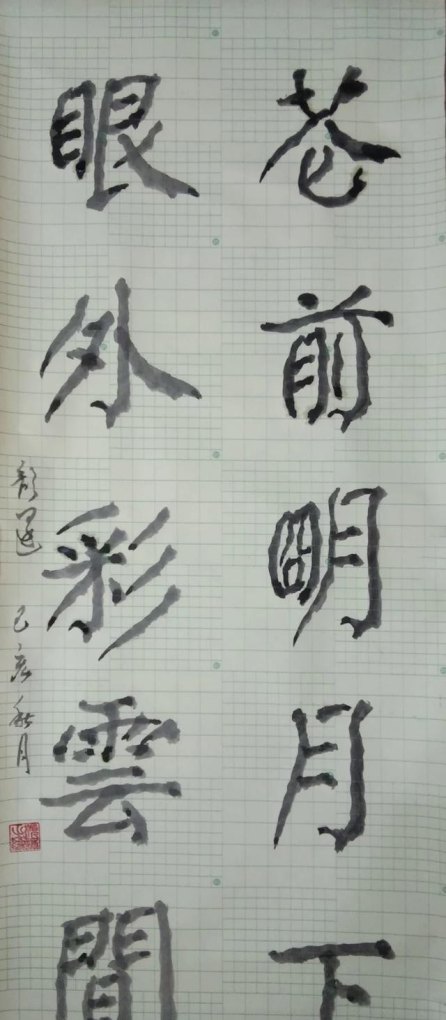 苍前明月下
眼外彩雲間
己亥秋月